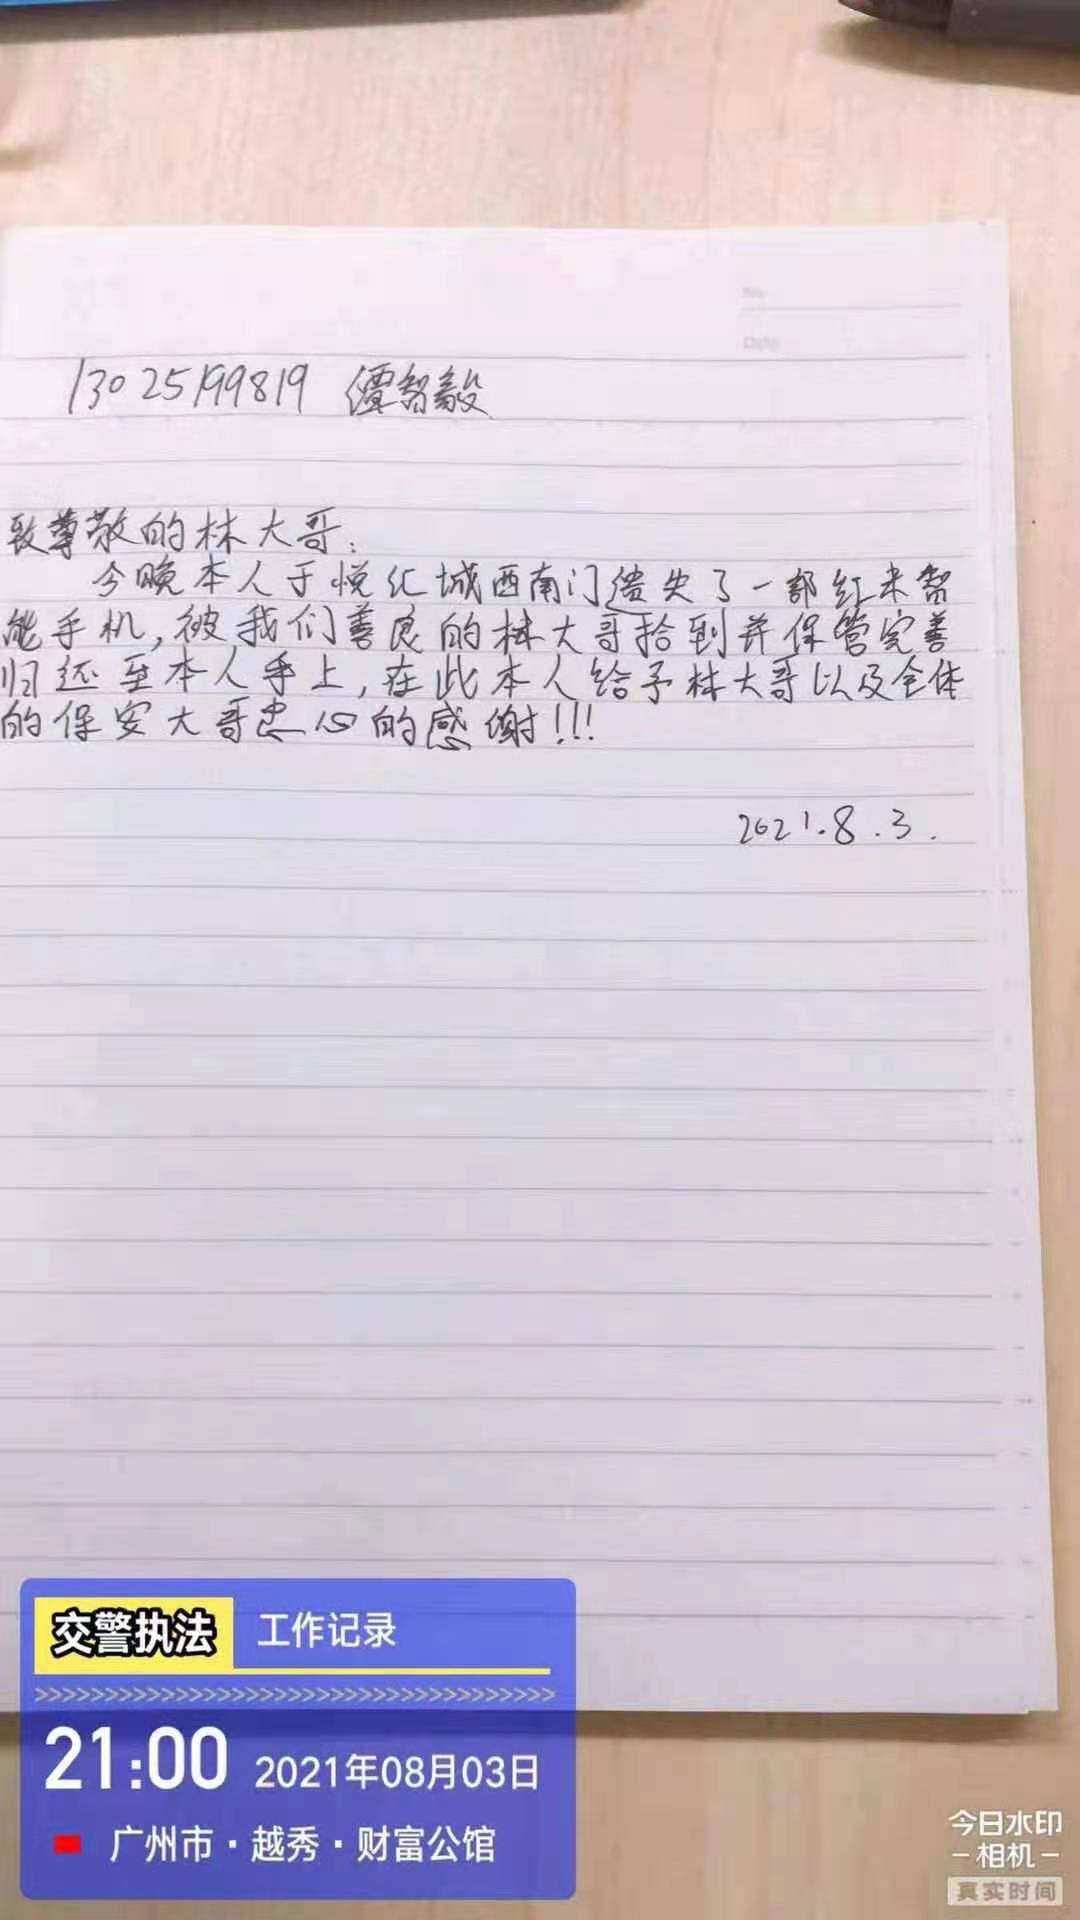 No.
Date
13025199819 儃智毅
致尊敬的林大哥:
今晚本人于悦汇城西南门遗失了一部红米智
能手机,被我们善良的林大哥拾到并保管完善
归还至本人手上,在此本人给予林大哥以及全体
的保安大哥忠心的感谢!!!
2021.8.3.
交警执法 工作记录
21:00 2021年08月03日
广州市·越秀·财富公馆
今日水印
-相机-
真实时间